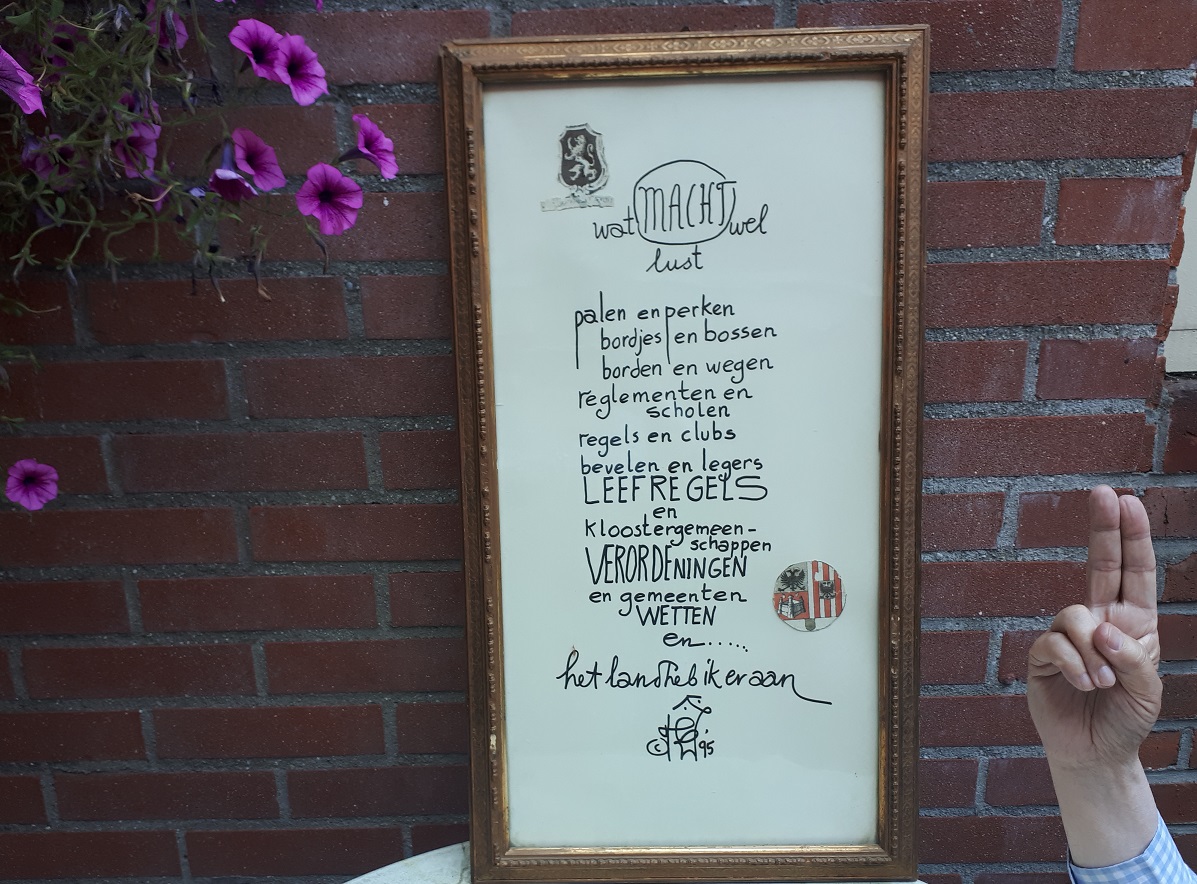 wat MACHT wel
lust
palen en perken
bordjes en bossen
borden en wegen
reglementen en
scholen
regels en clubs
bevelen en legers
LEEFREGELS
en
kloostergemeen-
schappen
VERORDENINGEN
en gemeenten
WETTEN
en.....
het land heb ik er aan
© 95